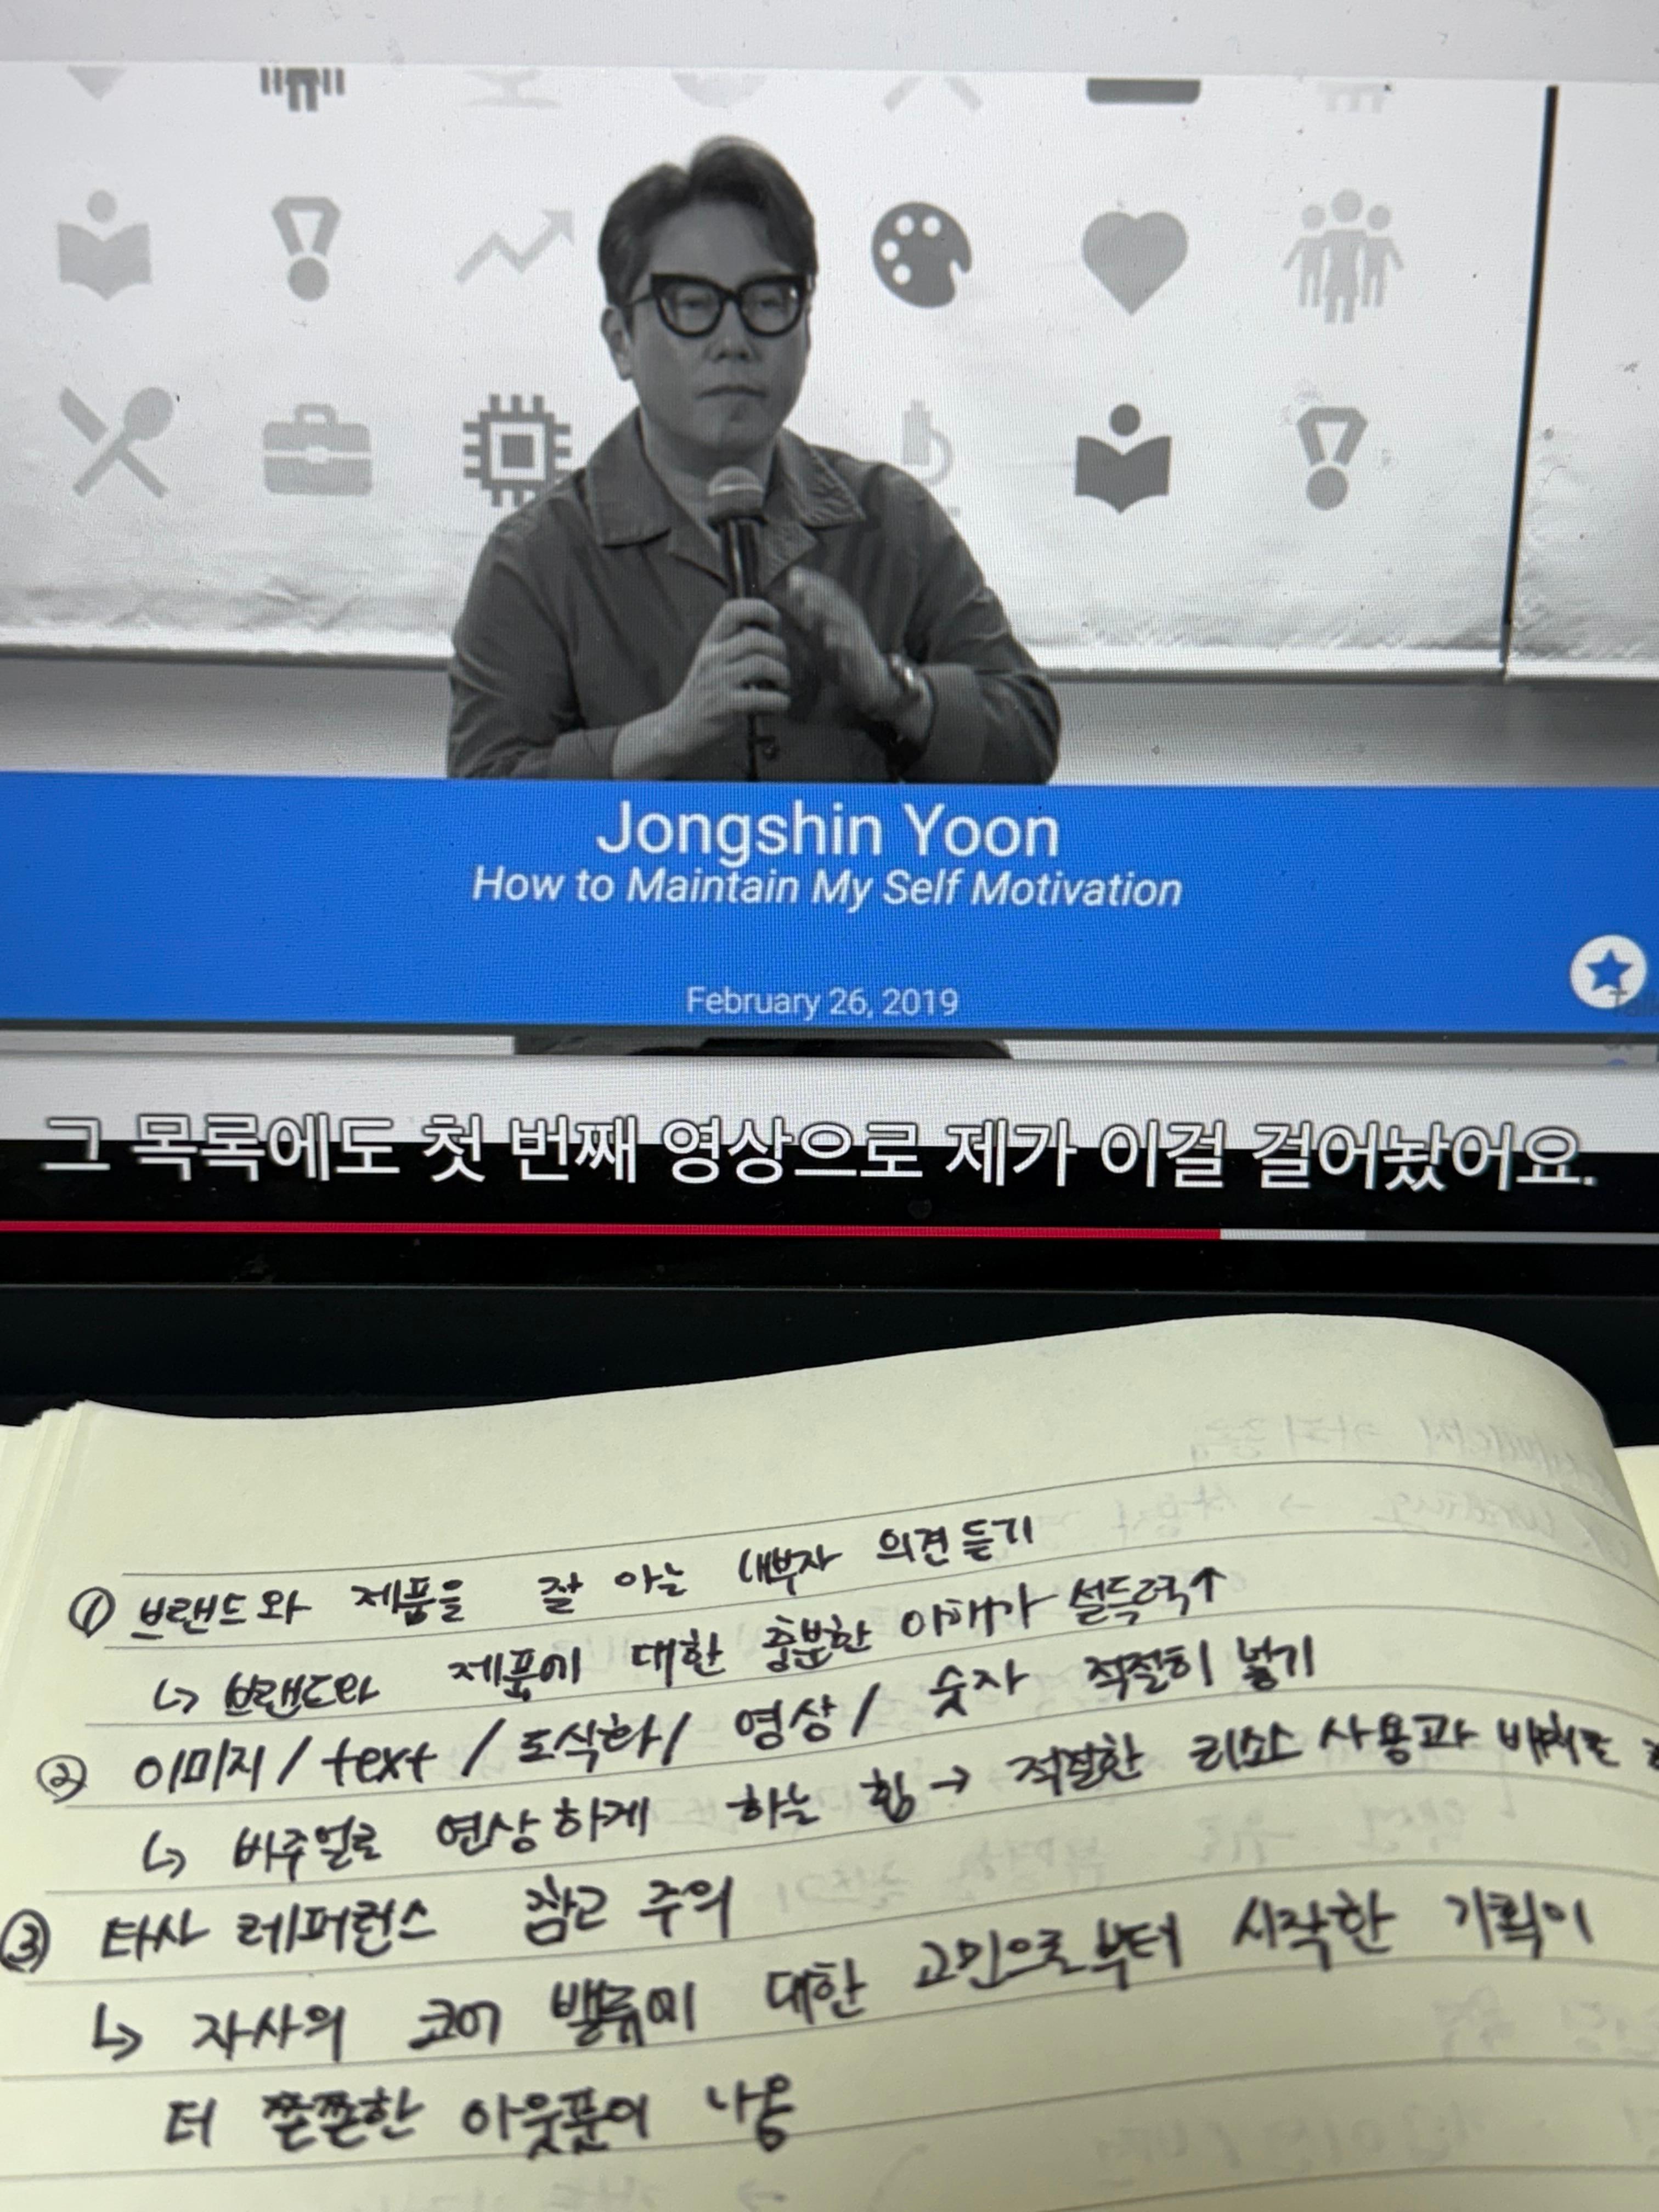 Jongshin Yoon
How to Maintain My Self Motivation
February 26, 2019
그 목록에도 첫 번째 영상으로 제가 이걸 걸어놨어요.
① 브랜드와 제품을 잘 아는 내부자 의견 듣기
↳ 브랜드와 제품에 대한 충분한 이해가 설득력↑
② 이미지 / text / 도식화 / 영상 / 숫자 적절히 넣기
↳ 비주얼로 연상하게 하는 힘 → 적절한 리소스 사용과 배치로
③ 타사 레퍼런스 참고 주의
↳ 자사의 코어 밸류에 대한 고민으로부터 시작한 기획이
더 쫀쫀한 아웃풋이 나옴